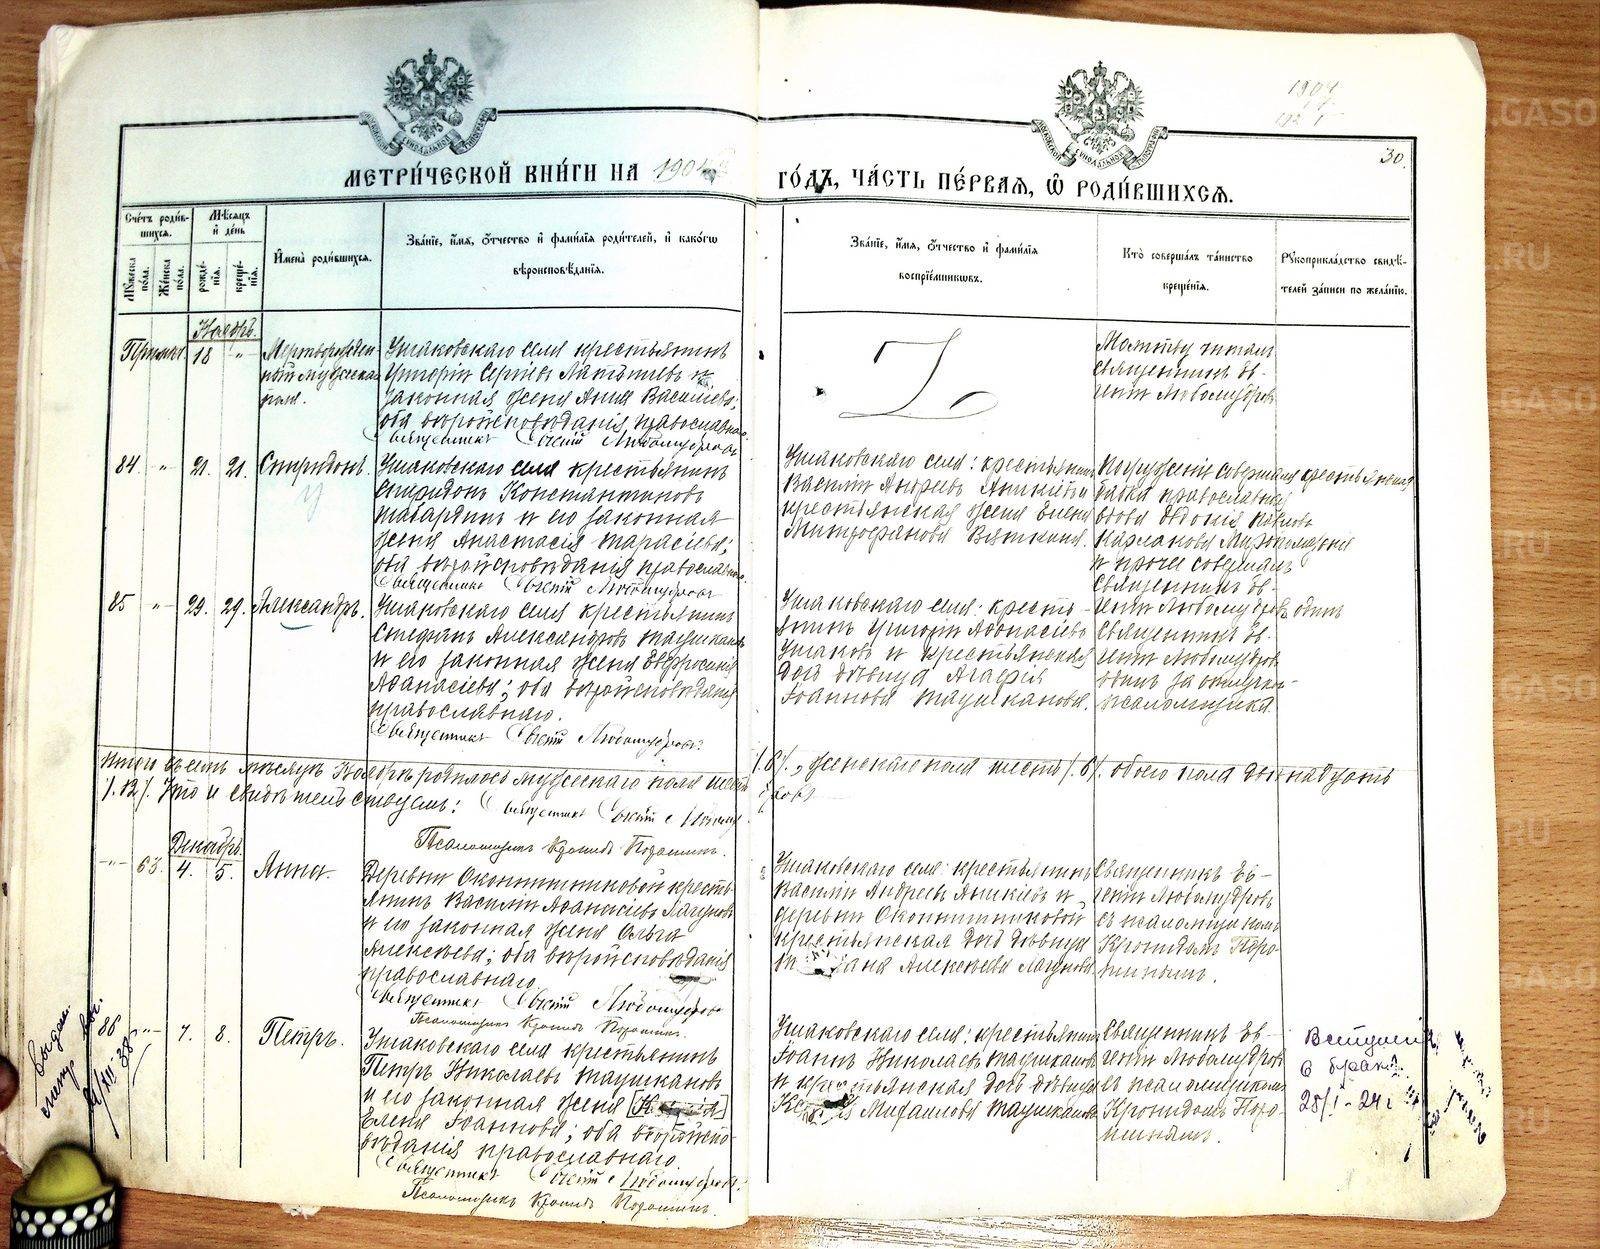 МЕТРИ́ЧЕСКОЙ КНИ́ГИ НА 190
ГО́ДЪ, ЧА́СТЬ ПЕ́РВАЯ, Ѡ҆ РОДИ́ВШИХСЯ.
30.
Сче́тъ роди́вшихся.
Мѣ́сяцъ и де́нь
Му́жеска по́ла.
Же́нска по́ла.
рожде́нія.
креще́нія.
И҆мена̀ роди́вшихся.
Зва́ніе, и҆́мя, о҆́тчество и҆ фами́лія роди́телей, и҆ како́гѡ
вѣроисповѣ́данія.
Зва́ніе, и҆́мя, о҆́тчество и҆ фами́лія
воспріе́мникѡвъ.
Кто̀ соверша́лъ та́инство
креще́нія.
Рꙋкоприкла́дство свидѣ́-
телей за́писи по жела́нію.
Ноябрь.
18 "
Мертворожден
ный мужеска
пола.
Ушаковскаго села крестьянинъ
Григорій Сергѣевъ и
законная жена Анна Василіева;
оба вѣроисповѣданія православнаго.
Священникъ Евѳгній Любомудровъ
Молитву читалъ
священникъ Ев-
геній Любомудровъ
84. " 21. 21. Спиридонъ.
Ушаковскаго села крестьянинъ
Спиридонъ Константиновъ
и его законная
жена Анастасія Тарасіева;
оба вѣроисповѣданія православнаго.
Ушаковскаго села: крестьянинъ
Василій Андреевъ и
крестьянская жена Елена
Митрофанова Вяткина.
Погруженіе совершала крестьянская
вдова Евдокія Павлова
и прочее совершалъ
священникъ Ев-
геній Любомудровъ одинъ
85 " 29. 29. Александръ.
Ушаковскаго села крестьянинъ
Стефанъ Александровъ Таушкановъ
и его законная жена Евфросинія
Аѳанасіева; оба вѣроисповѣданія
православнаго.
Ушаковскаго села: кресть-
янинъ Григорій Аѳанасіевъ
Ушаковъ и крестьянская
дочь дѣвица Агафія
Іоаннова Таушканова.
Священникъ Ев-
геній Любомудровъ
одинъ за отлучкой
псаломщика.
Итого въ семъ мѣсяцѣ Ноябрѣ родилось мужескаго пола шесть /.6/., женскаго пола шесть /.6/. обоего пола двѣнадцать
/.12/. Что и свидѣтельствуемъ: Священникъ Евгеній Любомудровъ
Псаломщикъ Кронидъ Порошинъ.
Декабрь.
" 63. 4. 5. Анна.
Деревни Оконишниковой кресть-
янинъ Василій Аѳанасіевъ Лагуновъ
и его законная жена Ольга
Алексѣева; оба вѣроисповѣданія
православнаго.
Псаломщикъ Кронидъ Порошинъ.
Ушаковскаго села: крестьянинъ
Василій Андреевъ и
деревни Оконишниковой
крестьянская дочь дѣвица
Алексѣева Лагунова.
Священникъ Ев-
геній Любомудровъ
съ псаломщикомъ
Кронидомъ Поро-
шинымъ.
86 " 7. 8. Петръ.
Ушаковскаго села крестьянинъ
Петръ Николаевъ Таушкановъ
и его законная жена
Елена Іоаннова; оба вѣроиспо-
вѣданія православнаго.
Псаломщикъ Кронидъ Порошинъ.
Ушаковскаго села: крестьянинъ
Іоаннъ Николаевъ Таушкановъ
и крестьянская дочь дѣвица
Михаилова Таушканова.
Священникъ Ев-
геній Любомудровъ
съ псаломщикомъ
Кронидомъ Поро-
шинымъ.
Вступил
в брак
25/I-24 г